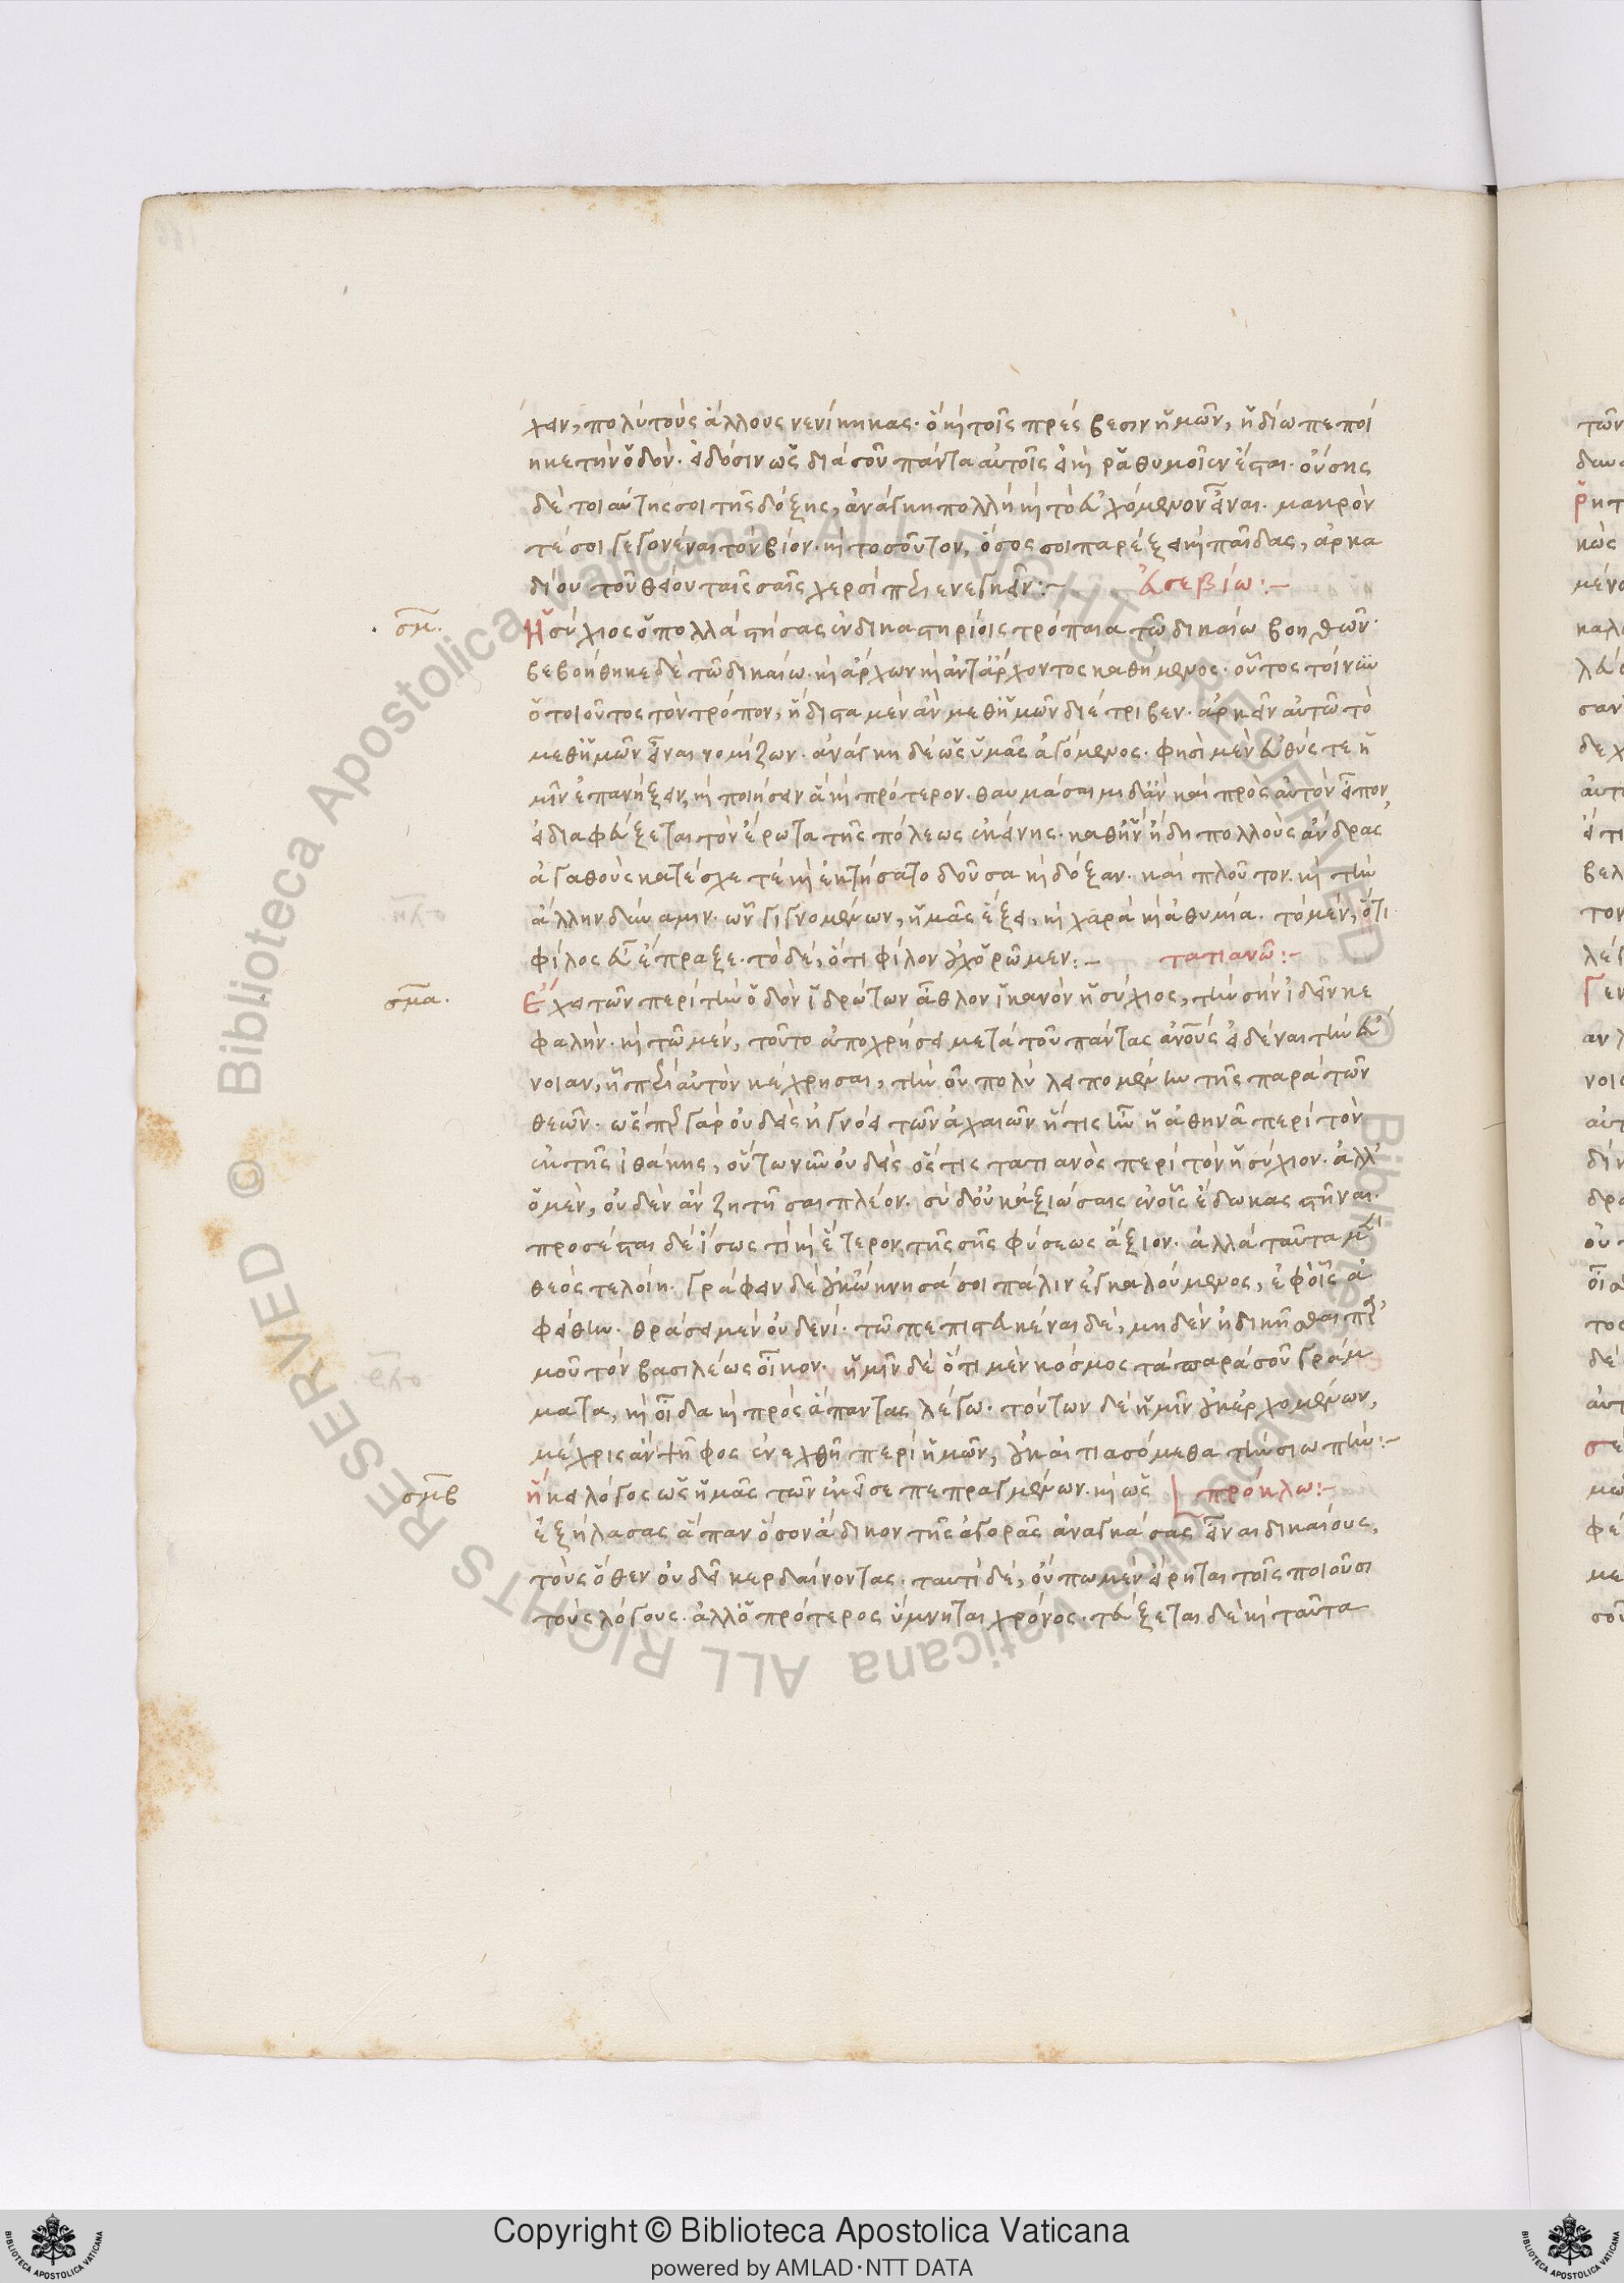 χειν, πολὺ τοὺς ἄλλους νενίκηκας. ὃ καὶ τοῖς πρέσβεσιν ἡμῶν, ἡδίω πεποί
ηκε τὴν ὁδόν. εἰδόσιν ὡς διὰ σοῦ πάντα αὐτοῖς εἰ καὶ ῥαθυμοῖεν ἔσται. οὔσης
δὲ τοιαύτης σοι τῆς δόξης, ἀνάγκη πολλὴ καὶ τὸ εὐχόμενον εἶναι. μακρόν
τέ σοι γεγονέναι τὸν βίον. καὶ τοσοῦτον, ὅσος σοι παρέξει καὶ παῖδας, ἀρκα
δίου τοῦ θείου ταῖς σαῖς χερσὶ περιενεγκεῖν:– εὐσεβίω:–
σμ. Ἡσύχιος ὁ πολλὰ στήσας ἐν δικαστηρίοις τρόπαια τῶ δικαίω βοηθῶν.
βεβοήθηκε δὲ τῶ δικαίω. καὶ ἄρχων καὶ ἀντ' ἄρχοντος καθήμενος. οὗτος τοίνυν
ὁ τοιοῦτος τὸν τρόπον, ἥδιστα μὲν ἂν μεθ' ἡμῶν διέτριβεν. ἀρκεῖν αὐτῶ τὸ
μεθ' ἡμῶν εἶναι νομίζων. ἀνάγκη δὲ ὡς ὑμᾶς ἀγόμενος. φησὶ μὲν εὐθύς τε ἡ
μῖν ἐπανήξειν, καὶ ποιήσειν ἃ καὶ πρότερον. θαυμάσαιμι δ' ἂν καὶ πρὸς αὐτὸν εἶπον,
εἰ διαφεύξεται τὸν ἔρωτα τῆς πόλεως ἐκείνης. καθ' ἣν ἤδη πολλοὺς ἄνδρας
ἀγαθοὺς κατέσχε τὲ καὶ ἐκτήσατο δοῦσα καὶ δόξαν. καὶ πλοῦτον. καὶ τὴν
ἄλλην δύναμιν. ὧν γιγνομένων, ἡμᾶς ἕξει, καὶ χαρὰ καὶ ἀθυμία. τὸ μέν, ὅτι
φίλος εὖ ἔπραξε. τὸ δέ, ὅτι φίλον οὐχ ὁρῶμεν:– τατιανῶ:–
σμα. Ἔχει τῶν περὶ τὴν ὁδὸν ἱδρώτων ἆθλον ἱκανὸν ἡσύχιος, τὴν σὴν ἰδεῖν κε
φαλήν. καὶ τῶ μέν, τοῦτο ἀποχρήσει μετὰ τοῦ πάντας ἀνους εἰδέναι τὴν εὔ
νοιαν, ᾗ περὶ αὐτὸν κέχρησαι, τὴν οὐ πολὺ λειπομένην τῆς παρὰ τῶν
θεῶν. ὥσπερ γὰρ οὐδεὶς ἠγνόει τῶν ἀχαιῶν ἥτις ἦν ἡ ἀθηνᾶ περὶ τὸν
ἐκ τῆς ἰθάκης, οὕτω νῦν οὐδεὶς ὅστις τατιανὸς περὶ τὸν ἡσύχιον. ἀλλ'
ὁ μέν, οὐδὲν ἂν ζητῆσαι πλέον. σὺ δ' οὐκ ἀξιώσαις ἐν οἷς ἔδωκας στῆναι.
προσέσται δὲ ἴσως τὶ καὶ ἕτερον τῆς σῆς φύσεως ἄξιον. ἀλλὰ ταῦτα μὲν
θεὸς τελοίη. γράφειν δὲ οὐκ ὤκνησά σοι πάλιν ἐγκαλούμενος, ἐφ' οἷς ἀ
φείθην. θράσει μὲν οὐδενί. τῶ πεπιστευκέναι δέ, μηδὲν ἠδικῆσθαι παρ'
μοῦ τὸν βασιλέως οἶκον. ἡμῖν δὲ ὅτι μὲν κόσμος τὰ παρὰ σοῦ γράμ
ματα, καὶ οἶδα καὶ πρὸς ἅπαντας λέγω. τούτων δὲ ἡμῖν οὐκ ἐρχομένων,
μέχρις ἂν ψῆφος ἐνεχθῆ περὶ ἡμῶν, οὐκ αἰτιασόμεθα τὴν σιωπήν:–
σμβ Ἥκει λόγος ὡς ἡμᾶς τῶν ἐκεῖσε πεπραγμένων. καὶ ὡς πρόκλω:–
ἐξήλασας ἅπαν ὅσον ἄδικον τῆς ἀγορᾶς ἀναγκάσας εἶναι δικαίους,
τοὺς ὅθεν οὐ δεῖ κερδαίνοντας. ταυτὶ δέ, οὔπω μὲν εἴρηται τοῖς ποιοῦσι
τοὺς λόγους. ἀλλ' ὁ πρότερος ὕμνηται χρόνος. τεύξεται δὲ καὶ ταῦτα
Copyright © Biblioteca Apostolica Vaticana
powered by AMLAD·NTT DATA